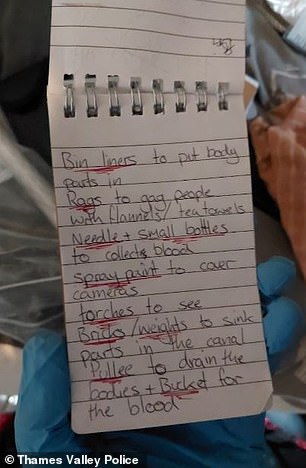 Bin liners to put body
parts in
Rags to gag people
with flannels / tea towels
Needle + small bottles
to collect blood
spray paint to cover
cameras
torches to see
Bricks / weights to sink
parts in the canal
Pullee to drain the
bodies + Bucket for
the blood
© Thames Valley Police